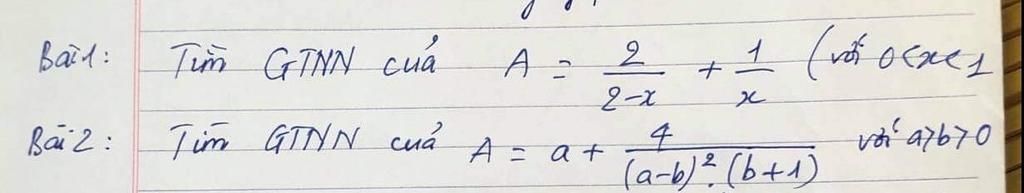 Bài 1: Tìm GTNN của A = 2/(2-x) + 1/x (với 0<x<1
Bài 2: Tìm GTNN của A = a + 4/((a-b)².(b+1)) với a>b>0